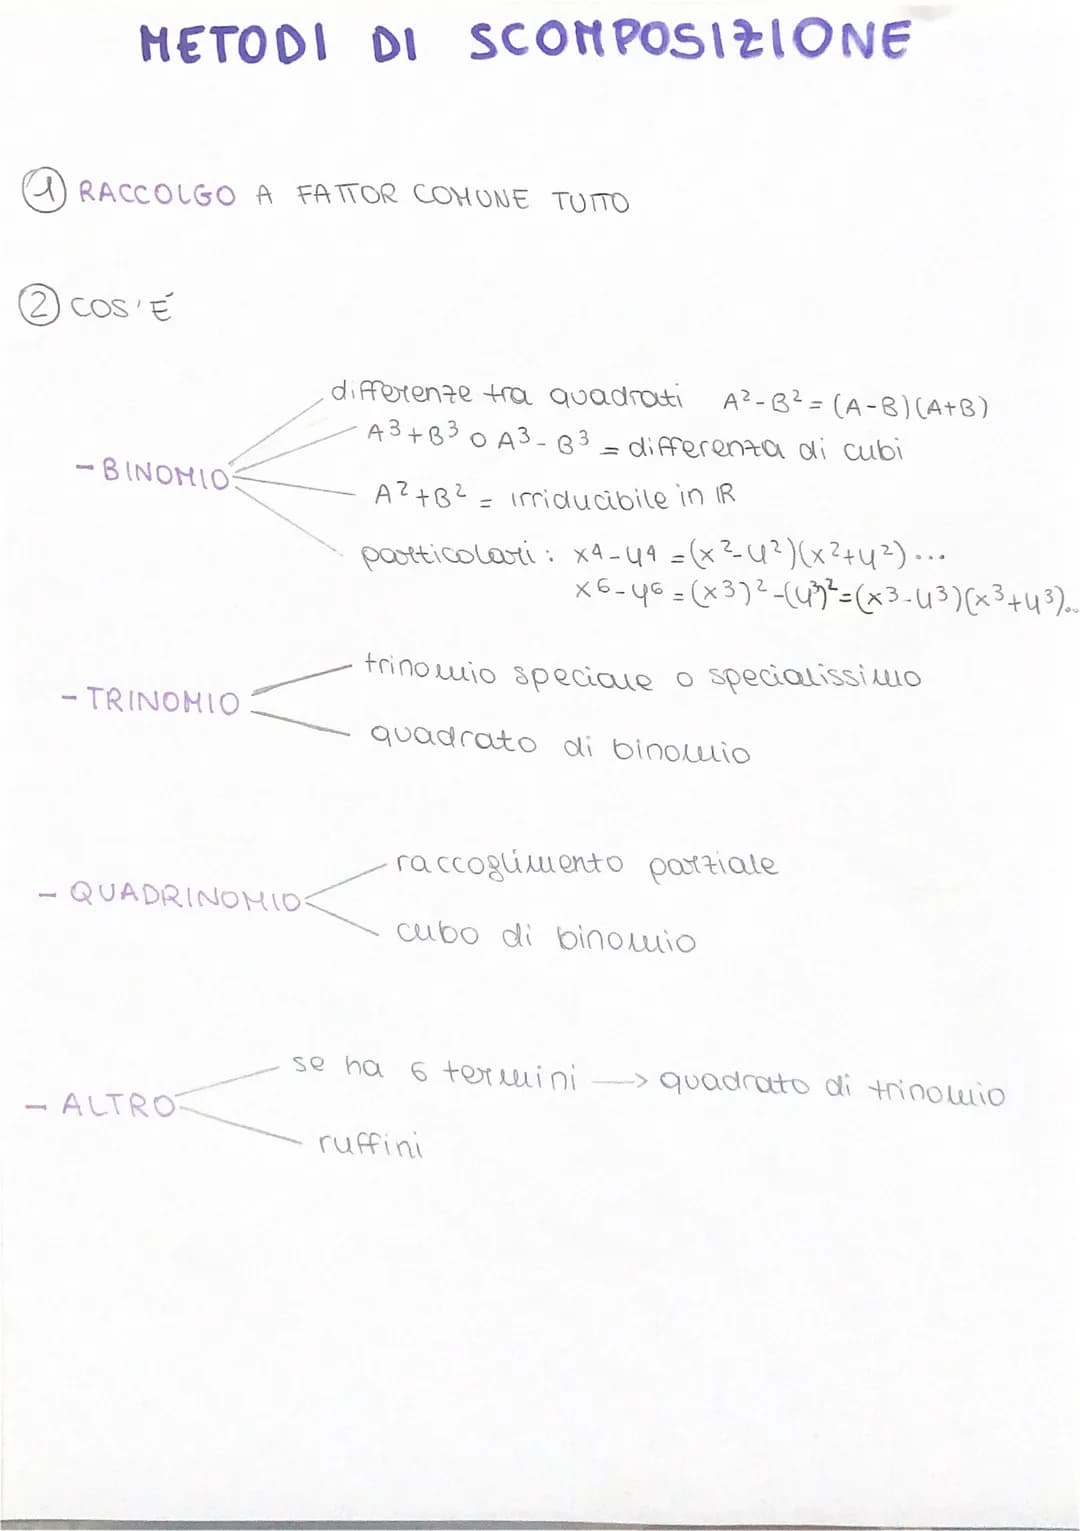 METODI DI SCOMPOSIZIONE
1 RACCOLGO A FATTOR COMUNE TUTTO
2 COS'É
- BINOMIO
differenze tra quadrati A²-B² = (A-B)(A+B)
A³+B³ o A³-B³ = differenza di cubi
A²+B² = irriducibile in IR
particolari: x⁴-y⁴ = (x²-y²)(x²+y²)...
x⁶-y⁶ = (x³)²-(y³)² = (x³-y³)(x³+y³)...
- TRINOMIO
trinomio speciale o specialissimo
quadrato di binomio
- QUADRINOMIO
raccoglimento parziale
cubo di binomio
- ALTRO
se ha 6 termini → quadrato di trinomio
ruffini